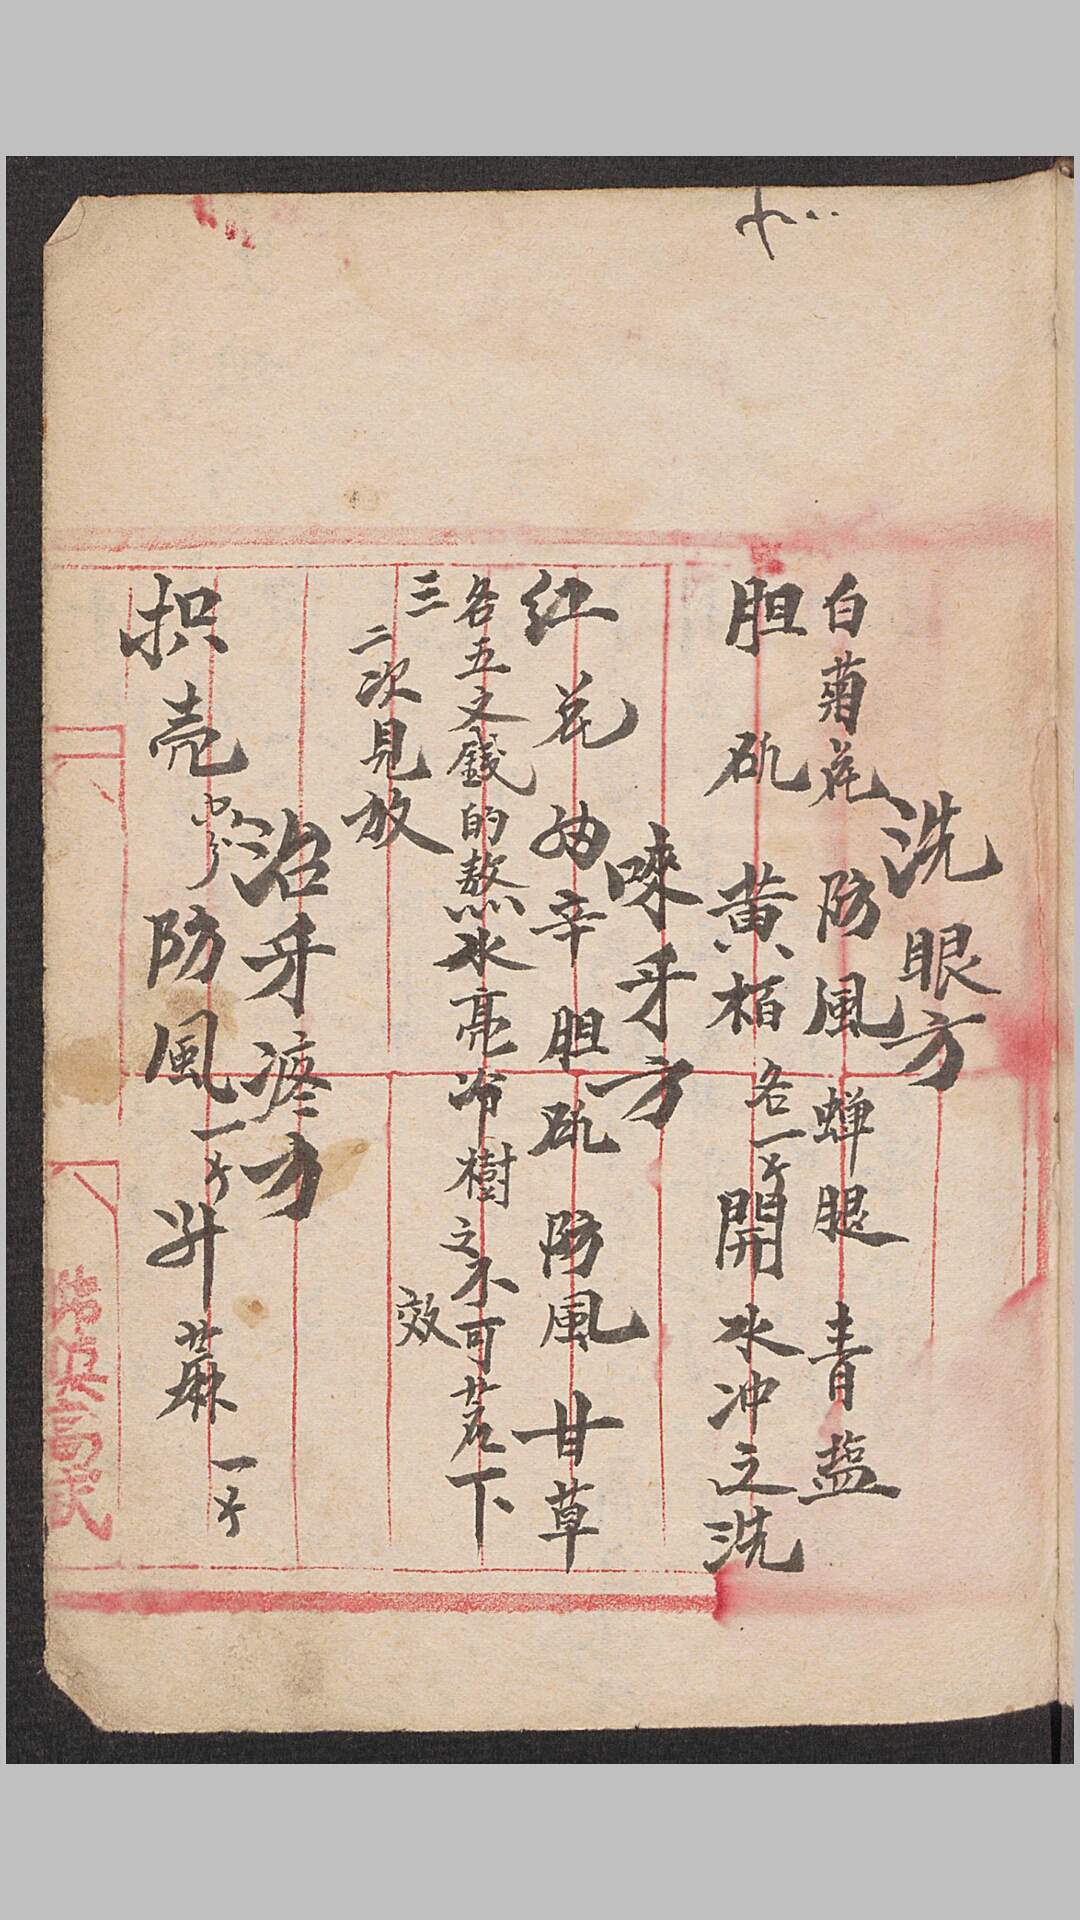 洗眼方
白菊花 防風 蟬腿 青盐
胆矾 黄栢 各一 開水冲之洗
唻牙方
红花 幼辛 胆矾 防風 甘草
各五文錢的熬水亮冷樹之不可茖下
三
二次見放
效
治牙疼方
枳壳 防風 一 升蔴 一